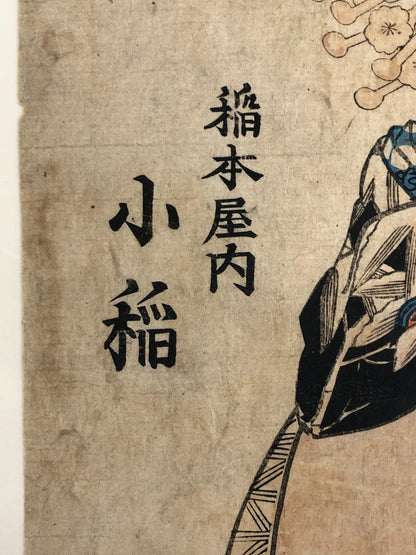 稲本屋内
小稲